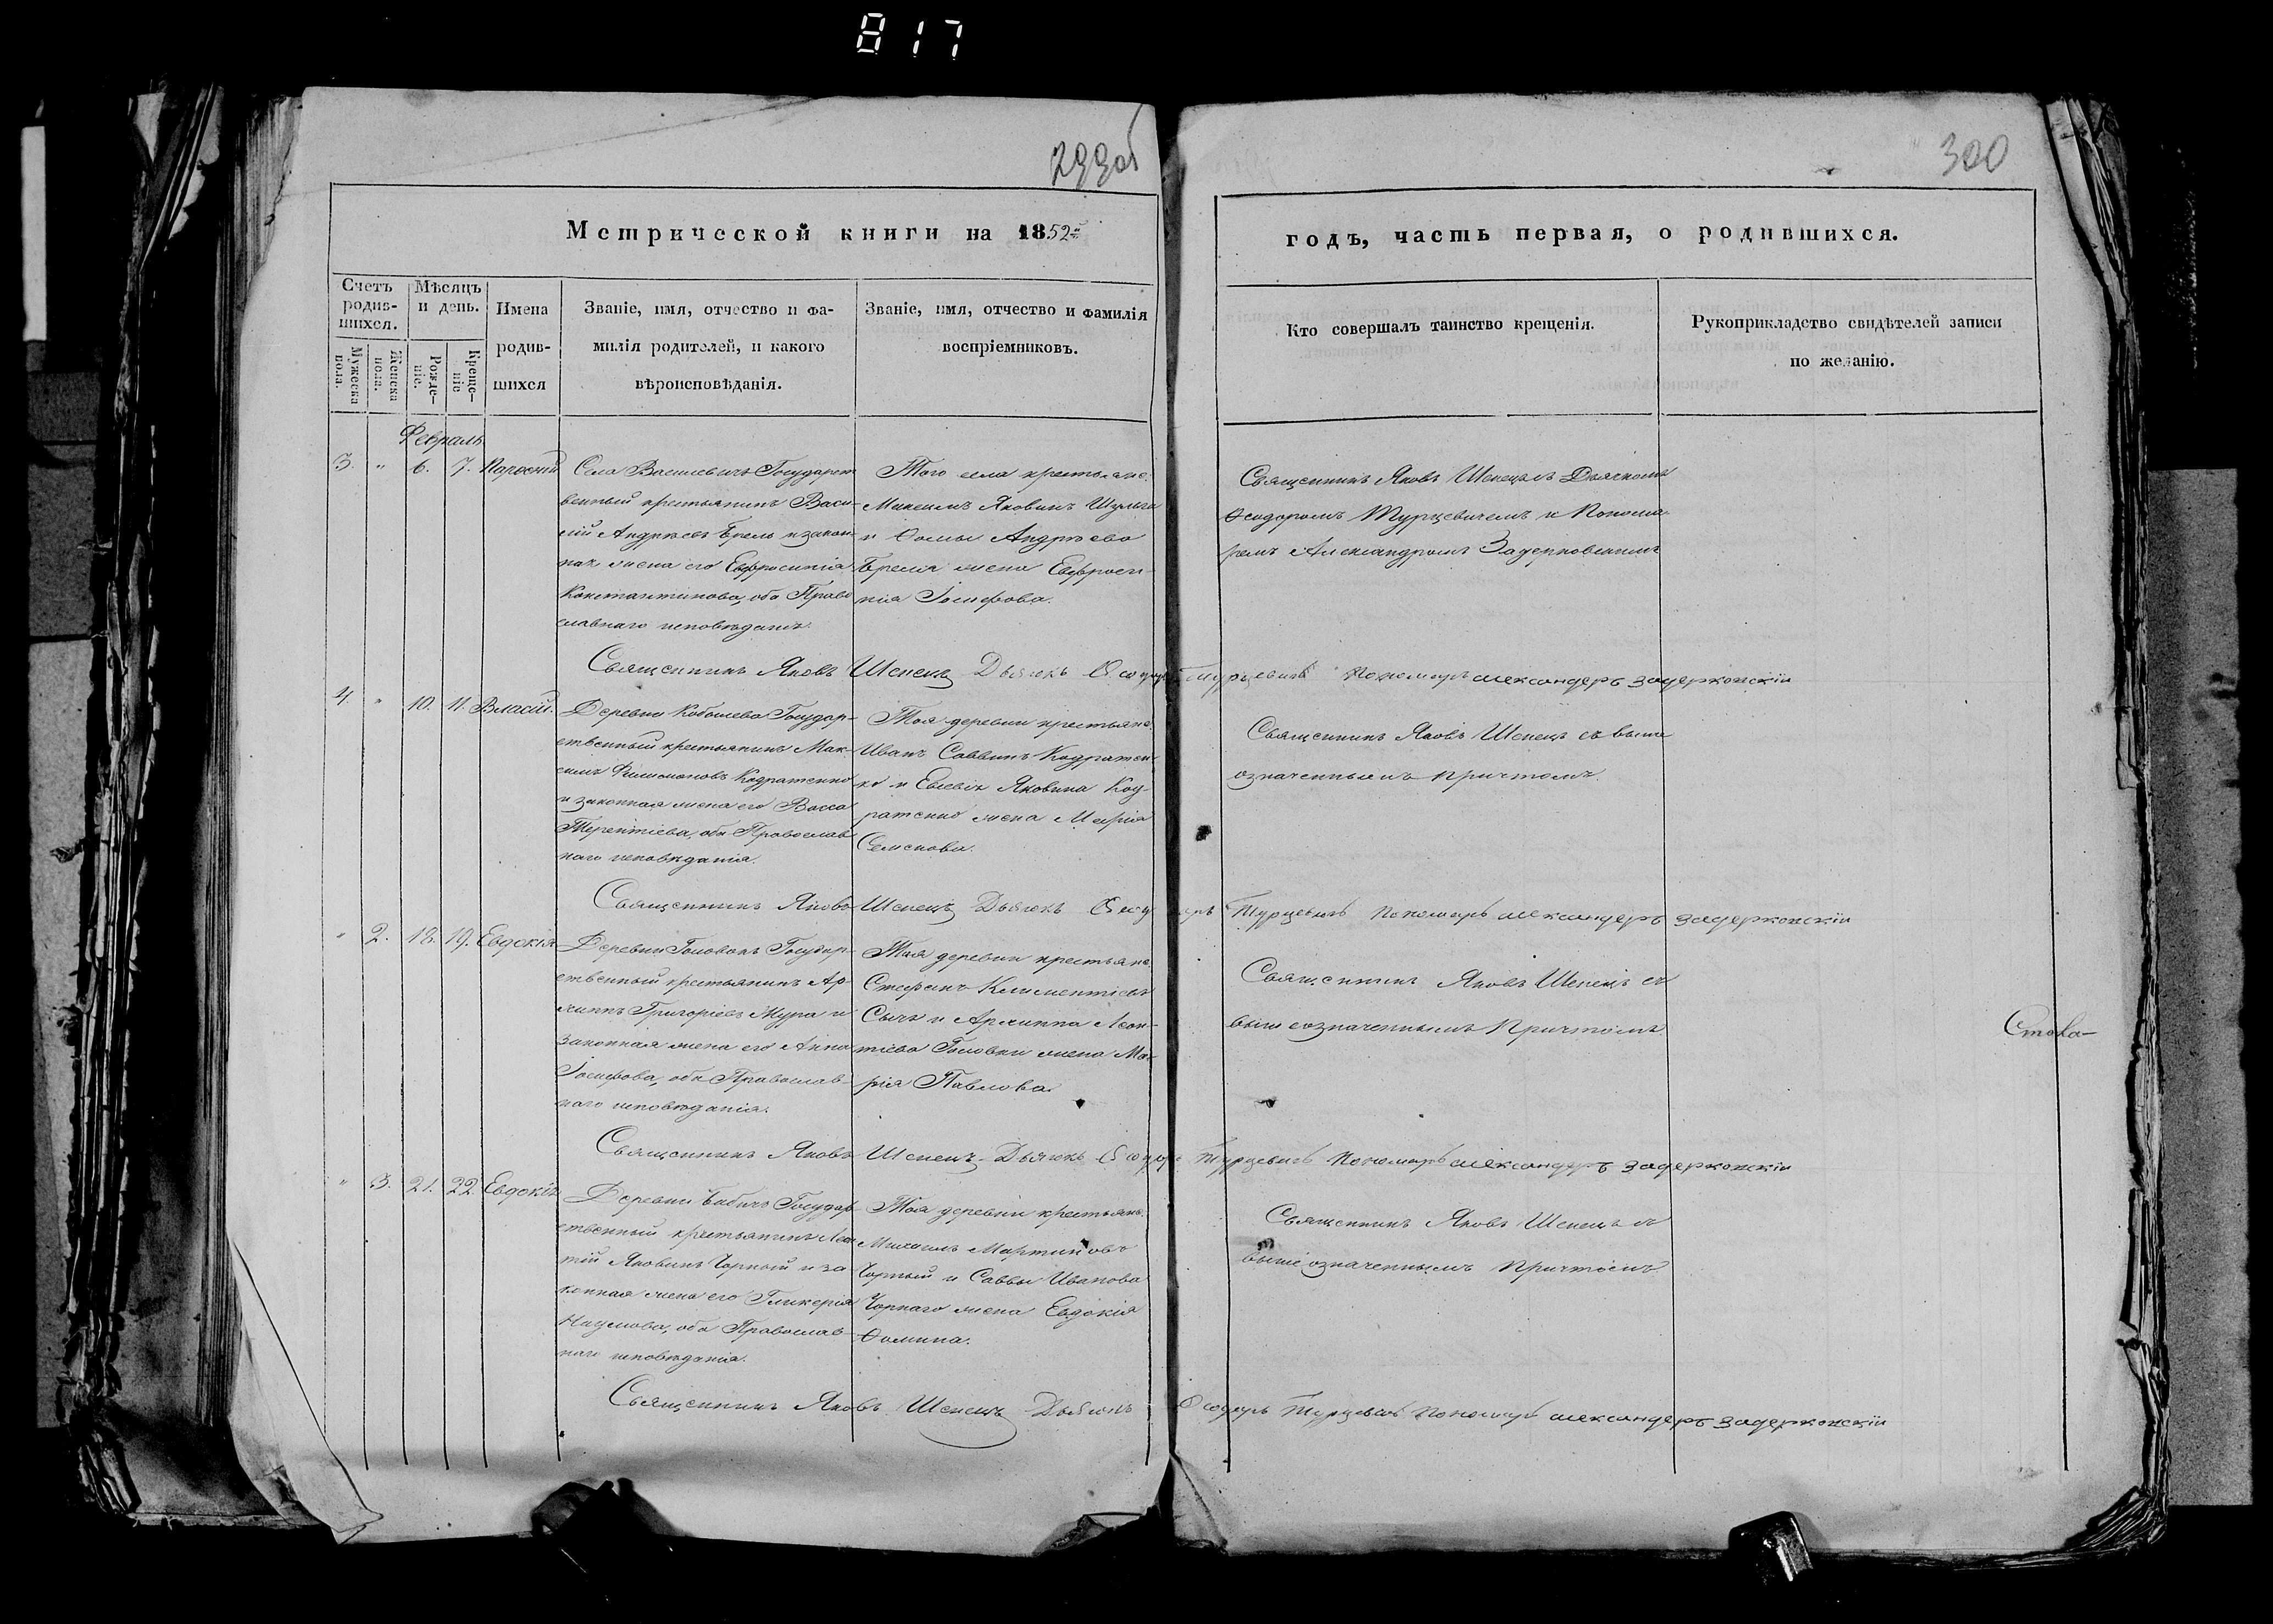 817
299об
300
Метрической книги на 1852й
годъ, часть первая, о родившихся.
Счетъ родив-шихся.
Мѣсяцъ и день.
Имена родив-шихся
Званіе, имя, отчество и фа-
милія родителей, и какого
вѣроисповѣданія.
Званіе, имя, отчество и фамилія
воспріемниковъ.
Кто совершалъ таинство крещенія.
Рукоприкладство свидѣтелей записи
по желанію.
Мужеска пола.
Женска пола.
Рожде-ніе.
Креще-ніе
Февраль
3. " 6. 7.
Села Василевичъ Государст
венный крестьянинъ Васи-
лій Андреевъ Брель и закон
ная жена его Евфросинія
Константинова, оба Право
славнаго исповѣданія.
Того села крестьяне:
Яковинъ Шульга
и Ѳомы Андреева
Бреля жена Евфроси-
нія Іосифова.
Священникъ Яковъ Шепецъ съ Дьячкомъ
Ѳеодоромъ Турцевичемъ и Понома-
ремъ Александромъ Задерковскимъ
Священникъ Яковъ Шепецъ Дьячокъ Ѳеодоръ Турцевичъ Пономарь Александеръ Задерковскій
4. " 10. 11. Власій.
Деревни Кобылева Государ-
ственный крестьянинъ Мак-
симъ Филимоновъ Кодратенко
и законная жена его Васса
Терентіева, оба Православ
наго исповѣданія.
Тоя деревни крестьяне:
Иванъ Саввинъ Кодратен-
ко и Евсевія Яковина Код-
ратенко жена Марія
Семенова.
Священникъ Яковъ Шепецъ съ выше
означеннымъ Причтомъ.
Священникъ Яковъ Шепецъ Дьячокъ Ѳеодоръ Турцевичъ Пономарь Александеръ Задерковскій
" 2. 18. 19. Евдокія
Деревни Головокъ Государ-
ственный крестьянинъ Ар-
хипъ Григоріевъ Мура и
законная жена его Анна
Іосифова, оба Православ-
наго исповѣданія.
Тоя деревни крестьяне:
Стефанъ Климентіевъ
Сычъ и Архипа Леон-
тіева Головки жена Ма-
рія Павлова.
Священникъ Яковъ Шепецъ съ
вышеозначеннымъ Причтомъ
Священникъ Яковъ Шепецъ Дьячокъ Ѳеодоръ Турцевичъ Пономарь Александеръ Задерковскій
" 3. 21. 22. Евдокія
Деревни Бабичъ Государ
ственный крестьянинъ Леон
тій Яковинъ Чорный и за
конная жена его Гликерія
Наумова, оба Православ
наго исповѣданія.
Тоя деревни крестьяне:
Михаилъ Мартиновъ
Чорный и Саввы Иванова
Чорнаго жена Евдокія
Ѳомина.
Священникъ Яковъ Шепецъ съ
вышеозначеннымъ Причтомъ
Священникъ Яковъ Шепецъ Дьячокъ Ѳеодоръ Турцевичъ Пономарь Александеръ Задерковскій